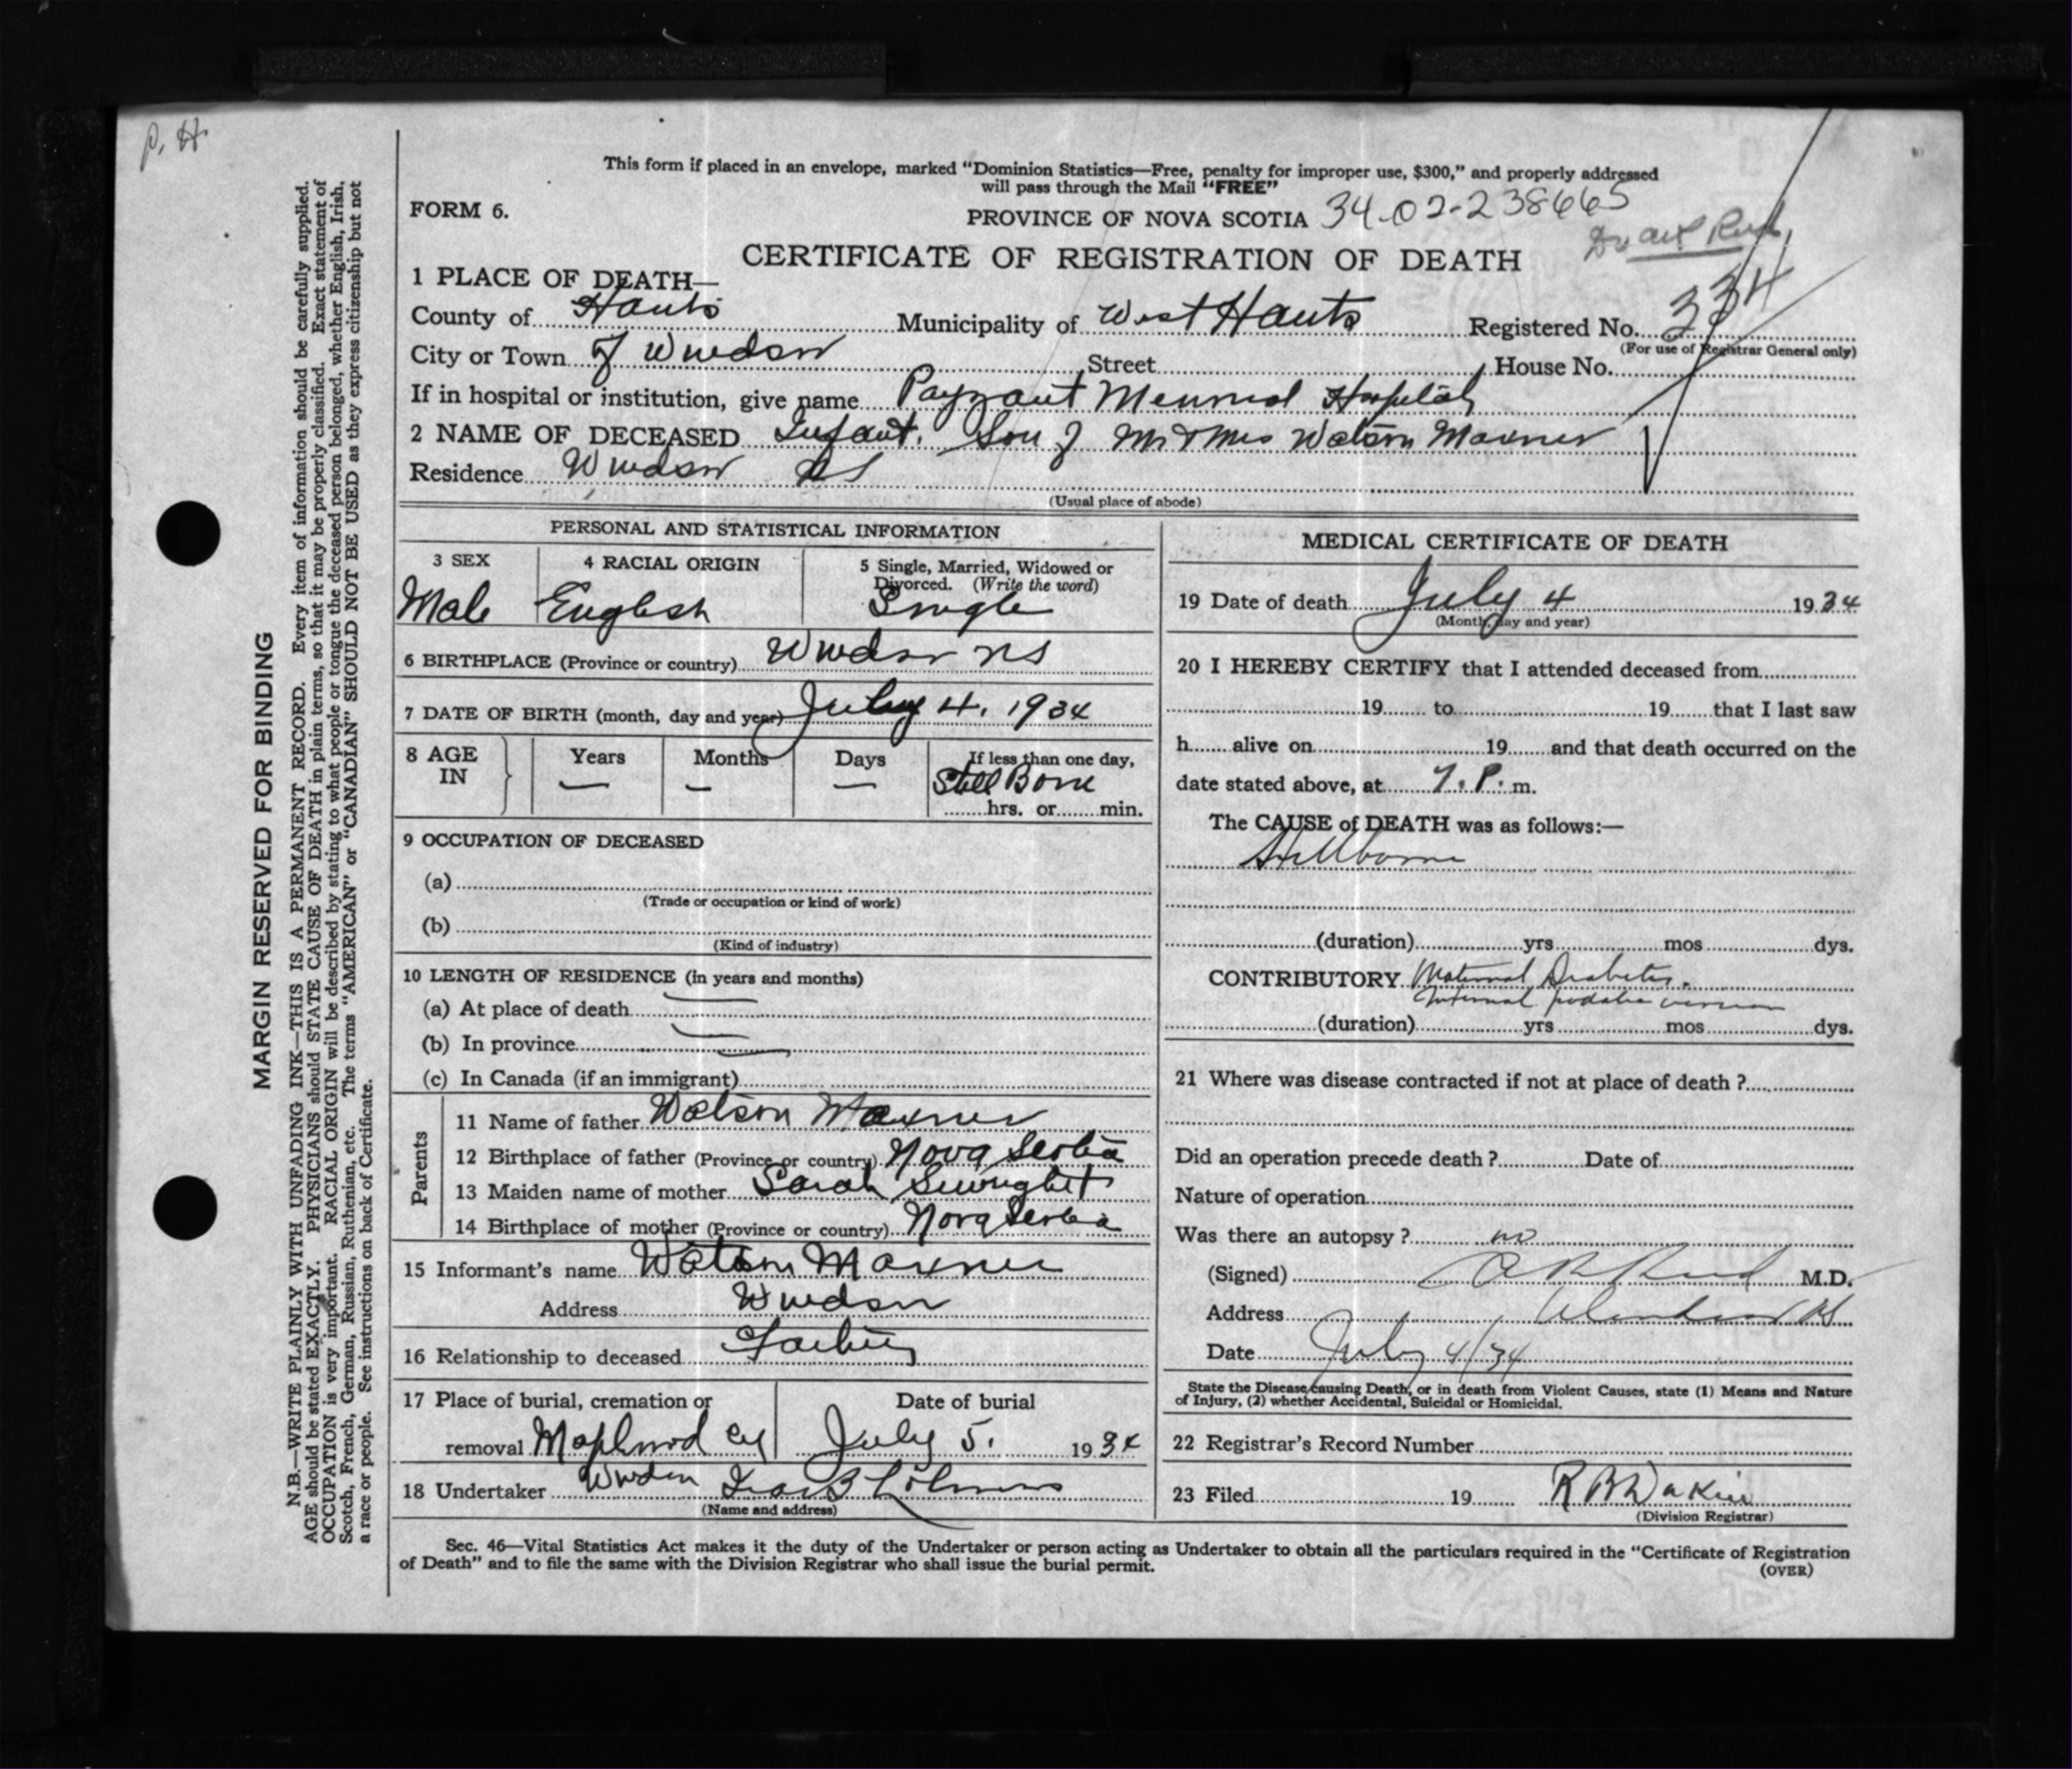 P. H.
MARGIN RESERVED FOR BINDING
N.B.—WRITE PLAINLY WITH UNFADING INK—THIS IS A PERMANENT RECORD. Every item of information should be carefully supplied.
AGE should be stated EXACTLY. PHYSICIANS should STATE CAUSE OF DEATH in plain terms, so that it may be properly classified. Exact statement of
OCCUPATION is very important. RACIAL ORIGIN will be described by stating to what people or tongue the deceased person belonged, whether English, Irish,
Scotch, French, German, Russian, Ruthenian, etc. The terms "AMERICAN" or "CANADIAN" SHOULD NOT BE USED as they express citizenship but not
a race or people. See instructions on back of Certificate.
This form if placed in an envelope, marked "Dominion Statistics—Free, penalty for improper use, $300," and properly addressed
will pass through the Mail "FREE"
FORM 6.
PROVINCE OF NOVA SCOTIA 34-02-238665
CERTIFICATE OF REGISTRATION OF DEATH
1 PLACE OF DEATH—
County of Hants Municipality of West Hants Registered No. 334
(For use of Registrar General only)
City or Town of Windsor Street House No.
If in hospital or institution, give name Payzant Memorial Hospital
2 NAME OF DECEASED Infant. Son of Mr & Mrs Watson Maxner
Residence Windsor NS
(Usual place of abode)
PERSONAL AND STATISTICAL INFORMATION
3 SEX 4 RACIAL ORIGIN 5 Single, Married, Widowed or
Divorced. (Write the word)
Male English Single
6 BIRTHPLACE (Province or country) Windsor NS
7 DATE OF BIRTH (month, day and year) July 4, 1934
8 AGE IN Years Months Days If less than one day,
— — — Still Born
hrs. or min.
9 OCCUPATION OF DECEASED
(a)
(Trade or occupation or kind of work)
(b)
(Kind of industry)
10 LENGTH OF RESIDENCE (in years and months)
(a) At place of death —
(b) In province —
(c) In Canada (if an immigrant) —
Parents
11 Name of father Watson Maxner
12 Birthplace of father (Province or country) Nova Scotia
13 Maiden name of mother Sarah
14 Birthplace of mother (Province or country) Nova Scotia
15 Informant's name Watson Maxner
Address Windsor
16 Relationship to deceased Father
17 Place of burial, cremation or Date of burial
removal Maplewood Cy July 5. 1934
18 Undertaker Windsor
(Name and address)
MEDICAL CERTIFICATE OF DEATH
19 Date of death July 4 1934
(Month, day and year)
20 I HEREBY CERTIFY that I attended deceased from
19 to 19 that I last saw
h alive on 19 and that death occurred on the
date stated above, at 7. P. m.
The CAUSE of DEATH was as follows:—
Stillborn
(duration) yrs mos dys.
CONTRIBUTORY Maternal Diabetes.
Internal podalic version
(duration) yrs mos dys.
21 Where was disease contracted if not at place of death ?
Did an operation precede death ? Date of
Nature of operation
Was there an autopsy ? no
(Signed) A R Reid M.D.
Address Windsor NS
Date July 4/34
State the Disease causing Death, or in death from Violent Causes, state (1) Means and Nature
of Injury, (2) whether Accidental, Suicidal or Homicidal.
22 Registrar's Record Number
23 Filed 19 R B Dakin
(Division Registrar)
Sec. 46—Vital Statistics Act makes it the duty of the Undertaker or person acting as Undertaker to obtain all the particulars required in the "Certificate of Registration
of Death" and to file the same with the Division Registrar who shall issue the burial permit.
(OVER)